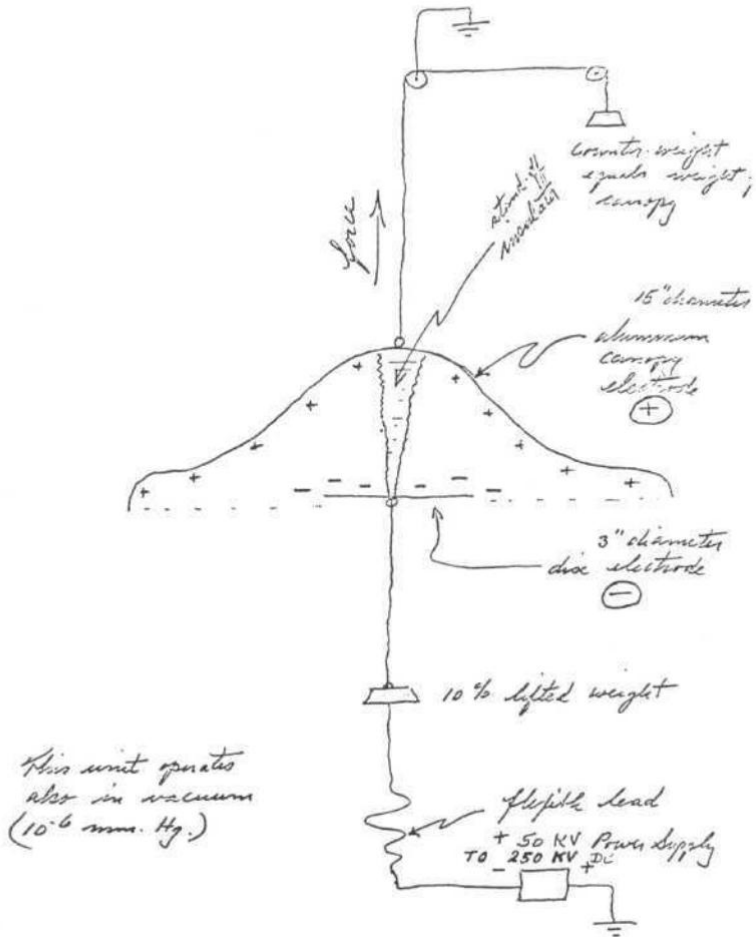 Counter-weight
equals weight
canopy
force
insulator
15" diameter
aluminum
canopy
electrode
+
+ + + + + + + + + + + +
- - - - - - -
3" diameter
disc electrode
-
10% lifted weight
This unit operates
also in vacuum
(10-6 mm. Hg.)
lead
+ 50 KV Power Supply
TO 250 KV DC
- +